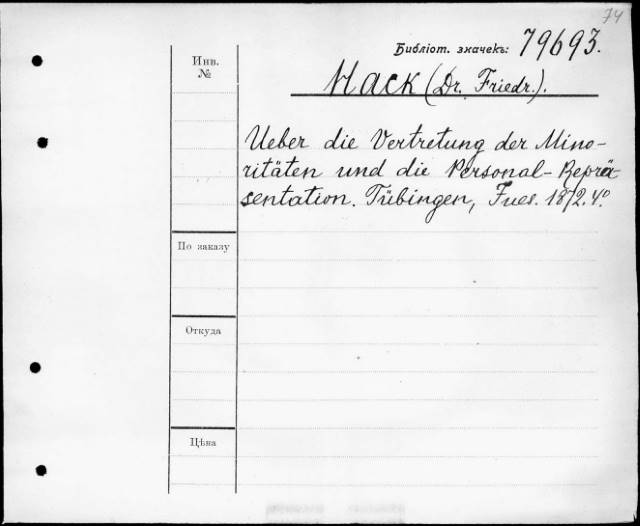 74
Библіот. значекъ: 79693.
Инв.
№
Hack (Dr. Friedr.).
Ueber die Vertretung der Mino-
ritäten und die Personal-Reprä-
sentation. Tübingen, Fues. 1872. 4º.
По заказу
Откуда
Цѣна